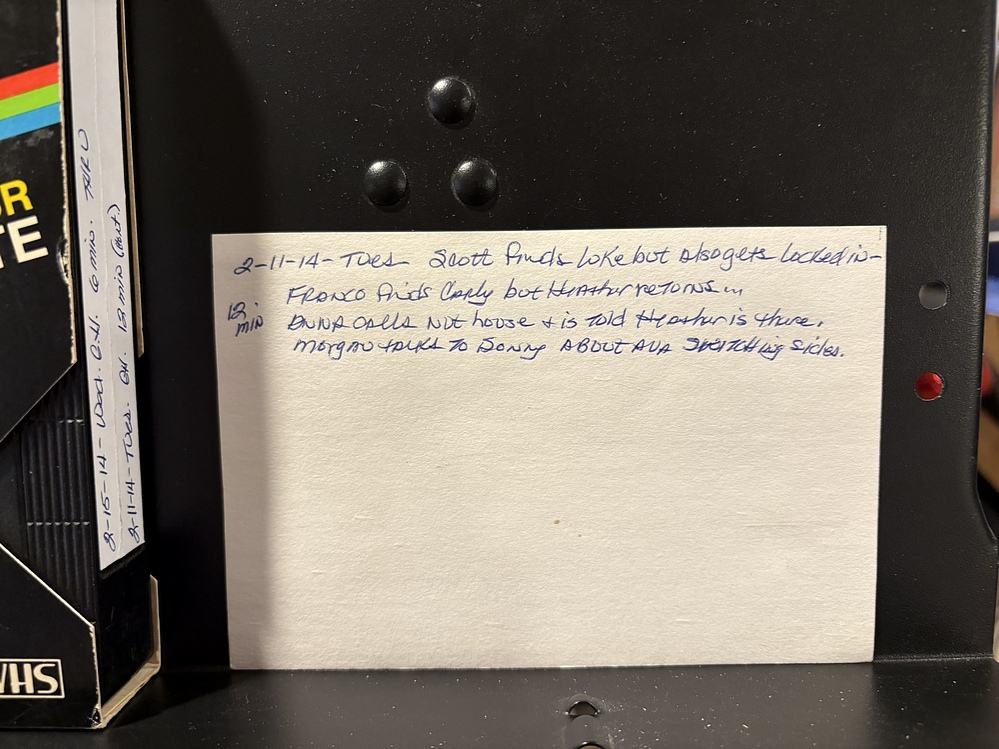 R
TE
VHS
2-15-14 - Wed. G.H. 6 min. THRU
2-11-14 - Tues. GH. 12 min (cont.)
2-11-14 - Tues Scott finds Luke but also gets locked in -
Franco finds Carly but Heather returns...
12 min
Anna calls nut house + is told Heather is there.
Morgan talks to Sonny ABOUT AVA SWITCHing sides.